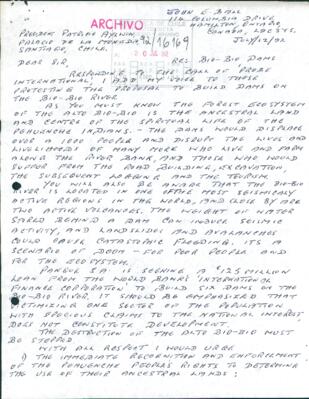 JOHN E. BALL
114 COLUMBIA DRIVE
HAMILTON, ONTARIO
CANADA, L9C 3Y5.
JULY/12/92
ARCHIVO
PRESIDENT PATRICIO AYLWIN
PALACIO DE LA MONEDA
SANTIAGO, CHILE.
92/16169
DEAR SIR, RE: BIO-BIO DAMS
RESPONDING TO THE CALL OF "PROBE
INTERNATIONAL", I ADD MY VOICE TO THOSE
PROTESTING THE PROPOSAL TO BUILD DAMS ON
THE BIO-BIO RIVER
AS YOU MUST KNOW THE FOREST ECOSYSTEM
OF THE ALTO BIO-BIO IS THE ANCESTRAL LAND
AND CENTRE OF THE SPIRITUAL LIFE OF THE
PEHUENCHE INDIANS. - THE DAMS WOULD DISPLACE
OVER A 1000 PEOPLE AND DISRUPT THE LIVES AND
LIVELIHOODS OF MANY MORE WHO LIVE AND FARM
ALONG THE RIVER BANK, AND THOSE WHO WOULD
SUFFER FROM THE ROAD BUILDING, EXCAVATION
THE SUBSEQUENT LOGGING AND THE TOURISM.
YOU WILL ALSO BE AWARE THAT THE BIO-BIO
RIVER IS LOCATED IN ONE OF THE MOST SEISMICALLY
ACTIVE REGIONS IN THE WORLD, AND CLOSE BY ARE
TWO ACTIVE VOLCANOES. THE WEIGHT OF WATER
STORED BEHIND A DAM CAN INDUCE SEISMIC
ACTIVITY, AND LANDSLIDES AND AVALANCHES
COULD CAUSE CATASTROPHIC FLOODING. IT'S A
SCENARIO OF DOOM - FOR POOR PEOPLE AND
FOR THE ECOSYSTEM.
PANGUE S.A. IS SEEKING A $125 MILLION
LOAN FROM THE WORLD BANK'S 'INTERNATIONAL
FINANCE CORPORATION' TO BUILD SIX DAMS ON THE
BIO-BIO RIVER. IT SHOULD BE EMPHASIZED THAT
VICTIMIZING ONE SECTOR OF THE POPULATION
WITH SPECIOUS CLAIMS TO THE NATIONAL INTEREST
DOES NOT CONSTITUTE DEVELOPMENT.
THE DESTRUCTION OF THE ALTO BIO-BIO MUST
BE STOPPED
WITH ALL RESPECT I WOULD URGE
1) THE IMMEDIATE RECOGNITION AND ENFORCEMENT
OF THE PEHUENCHE PEOPLE'S RIGHTS TO DETERMINE
THE USE OF THEIR ANCESTRAL LANDS;